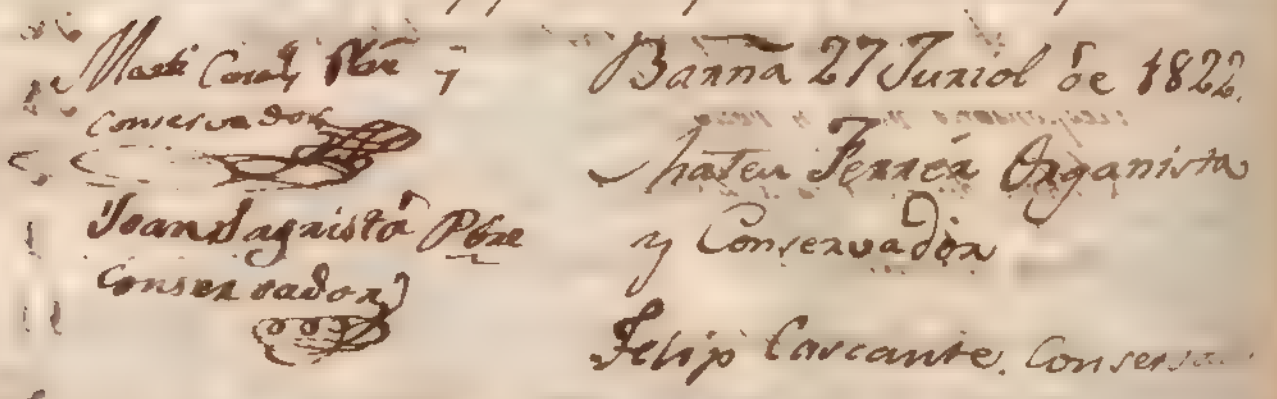 Martí Pbre y
Conservador
Joan Sagristá Pbre
Conservador
Barna 27 Juriol de 1822.
Mateu Ferrér Organista
y Conservador
Felip Cascante. Conserva